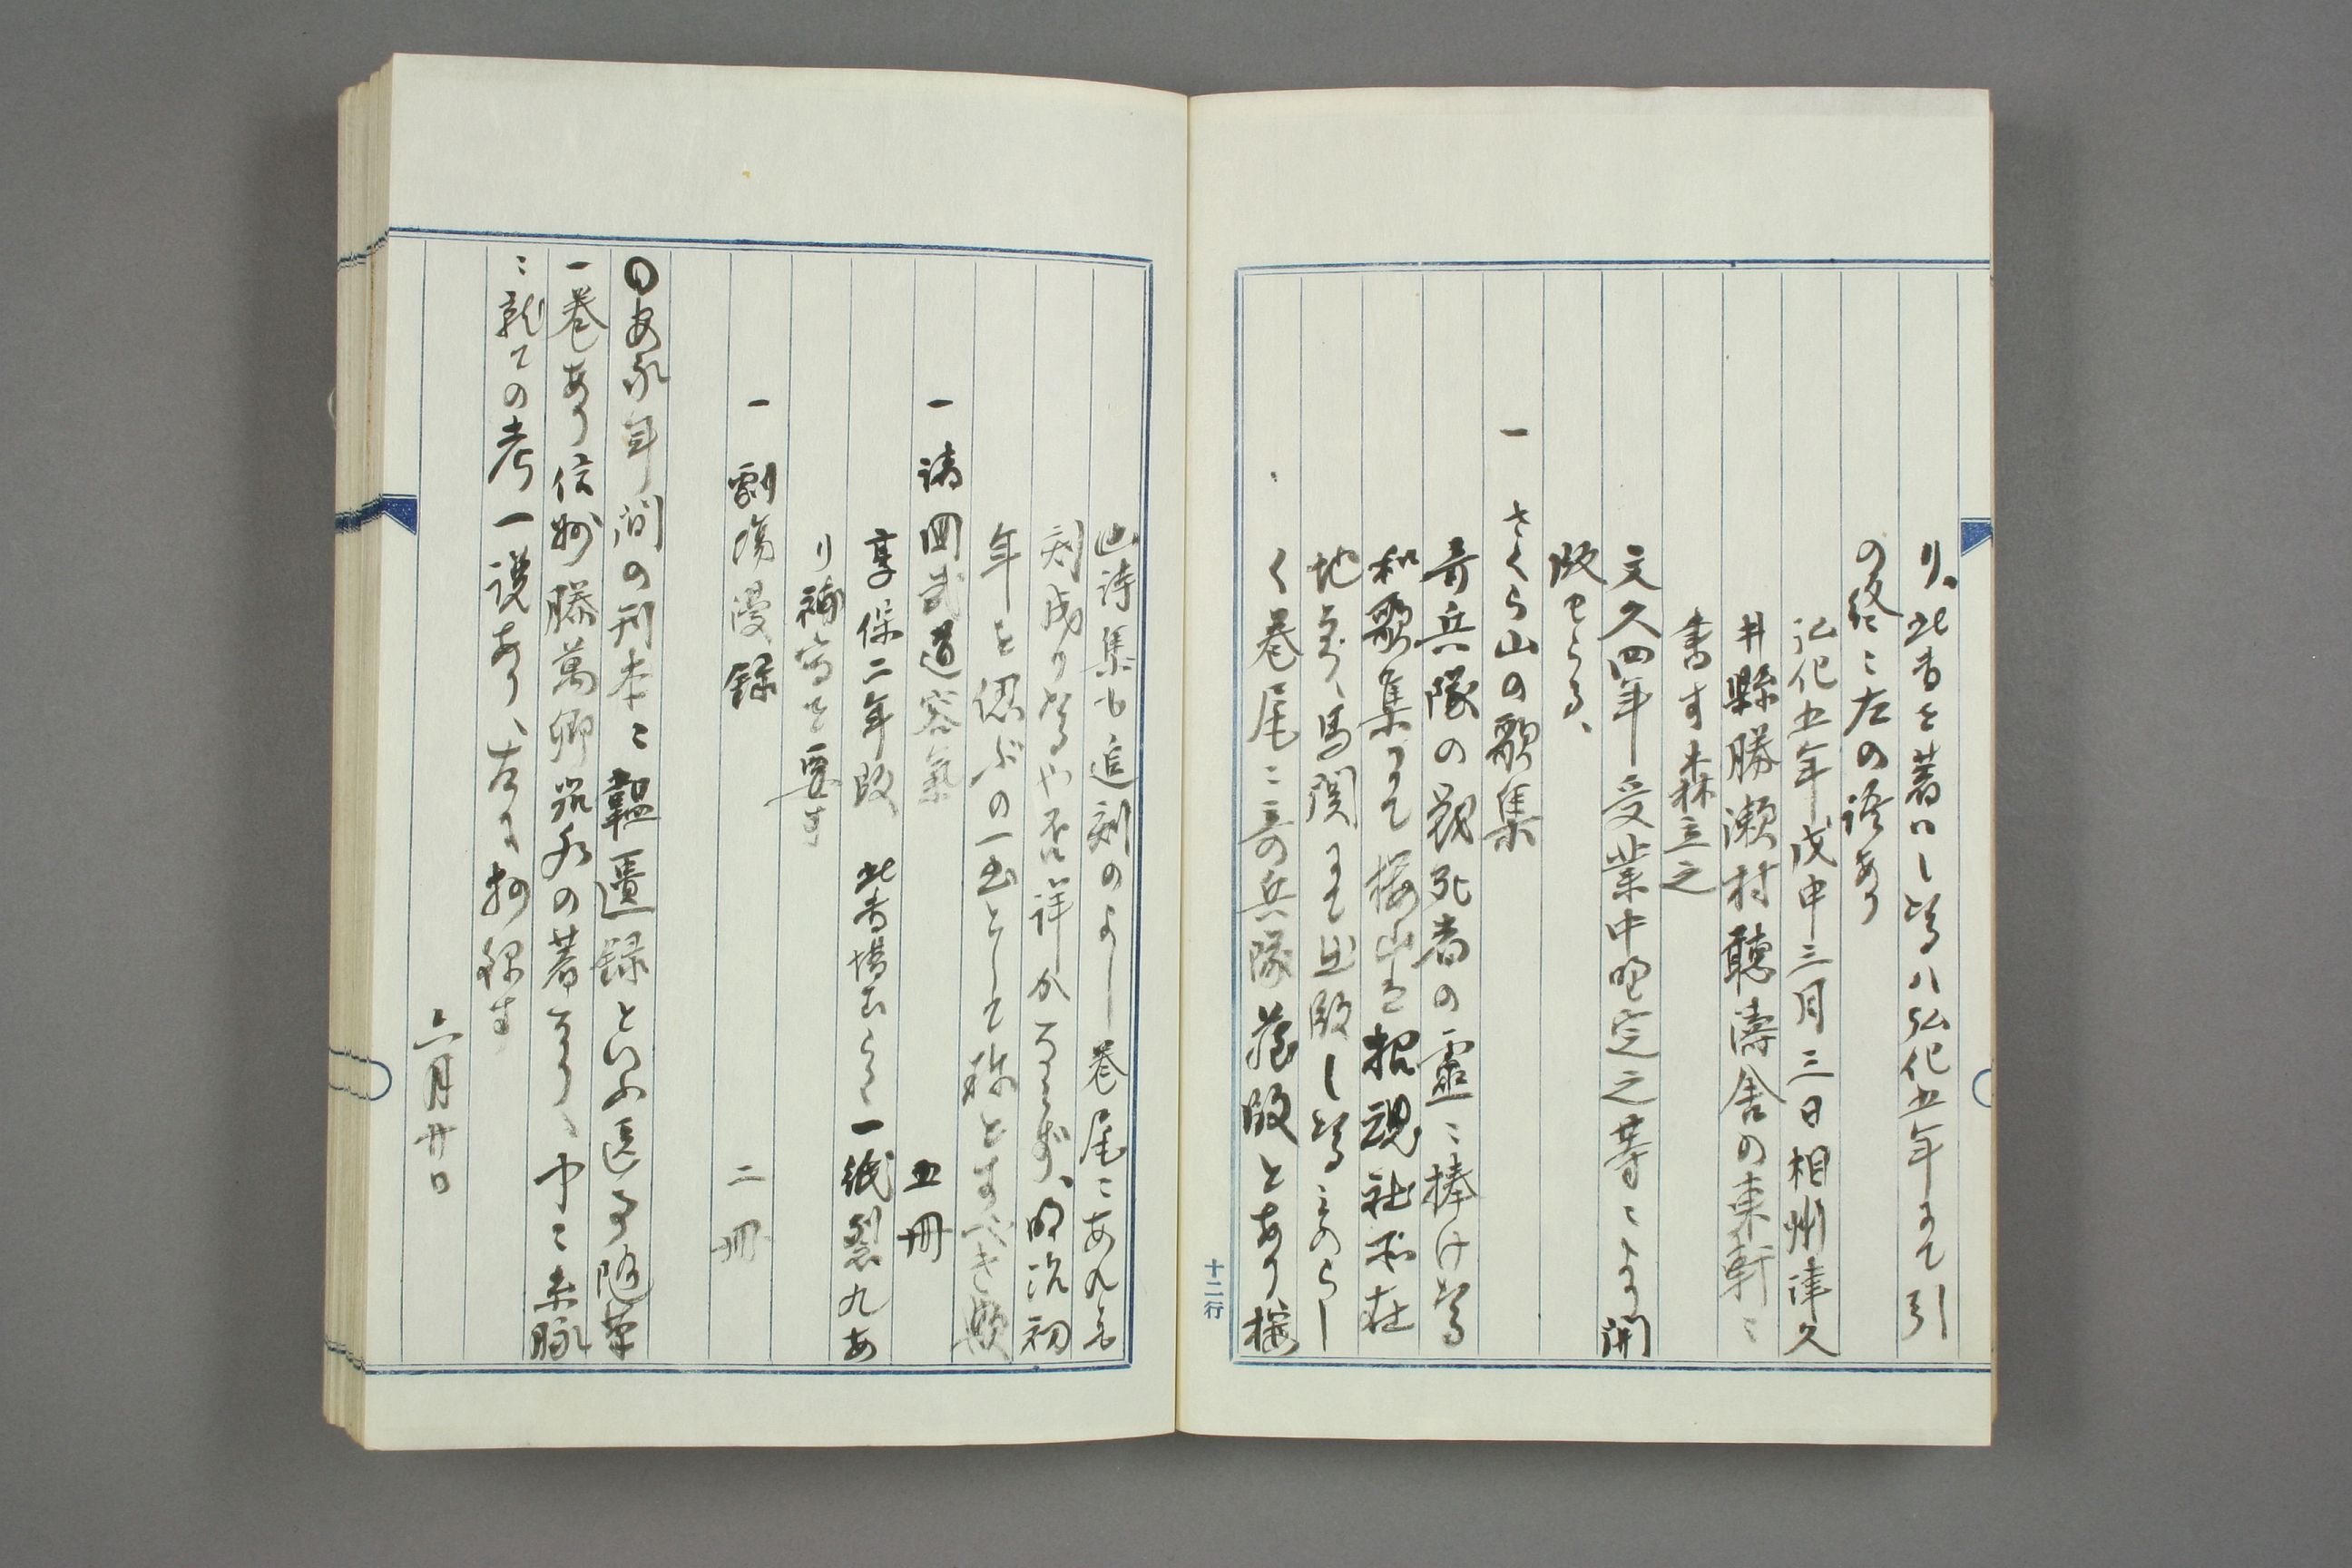 り、此書を著ハし島ハ弘化五年にて引
の終ニ左の語あり
弘化五年戊申三月三日相州津久
井縣勝瀬村聽濤舎の東軒ニ
書す 森立之
文久四年受業中野定之等ニより開
版せらる、
一 さくら山の歌集
奇兵隊の戰死者の靈ニ捧け
和歌集にて櫻山は招魂社所在
地なり、馬関にて出版しものらし
く巻尾ニ奇兵隊蔵版とあり、櫻
山詩集も追刻のよし巻尾ニあれ
刻成りしや否詳かならず、明治初
年を偲ぶの一書として珍とすべき歟
一 諸国武道容氣 五冊
享保二年版 此書場末らく一紙裂九あ
り補寫を要す
一 劉漫録 二冊
〇安永年間の刊本ニ韞匵録といふ医事随筆
一巻あり信州勝萬卿の著なり、中ニ糸脈
ニ就ての考一説あり、左に抄録す
二月廿日
十二行